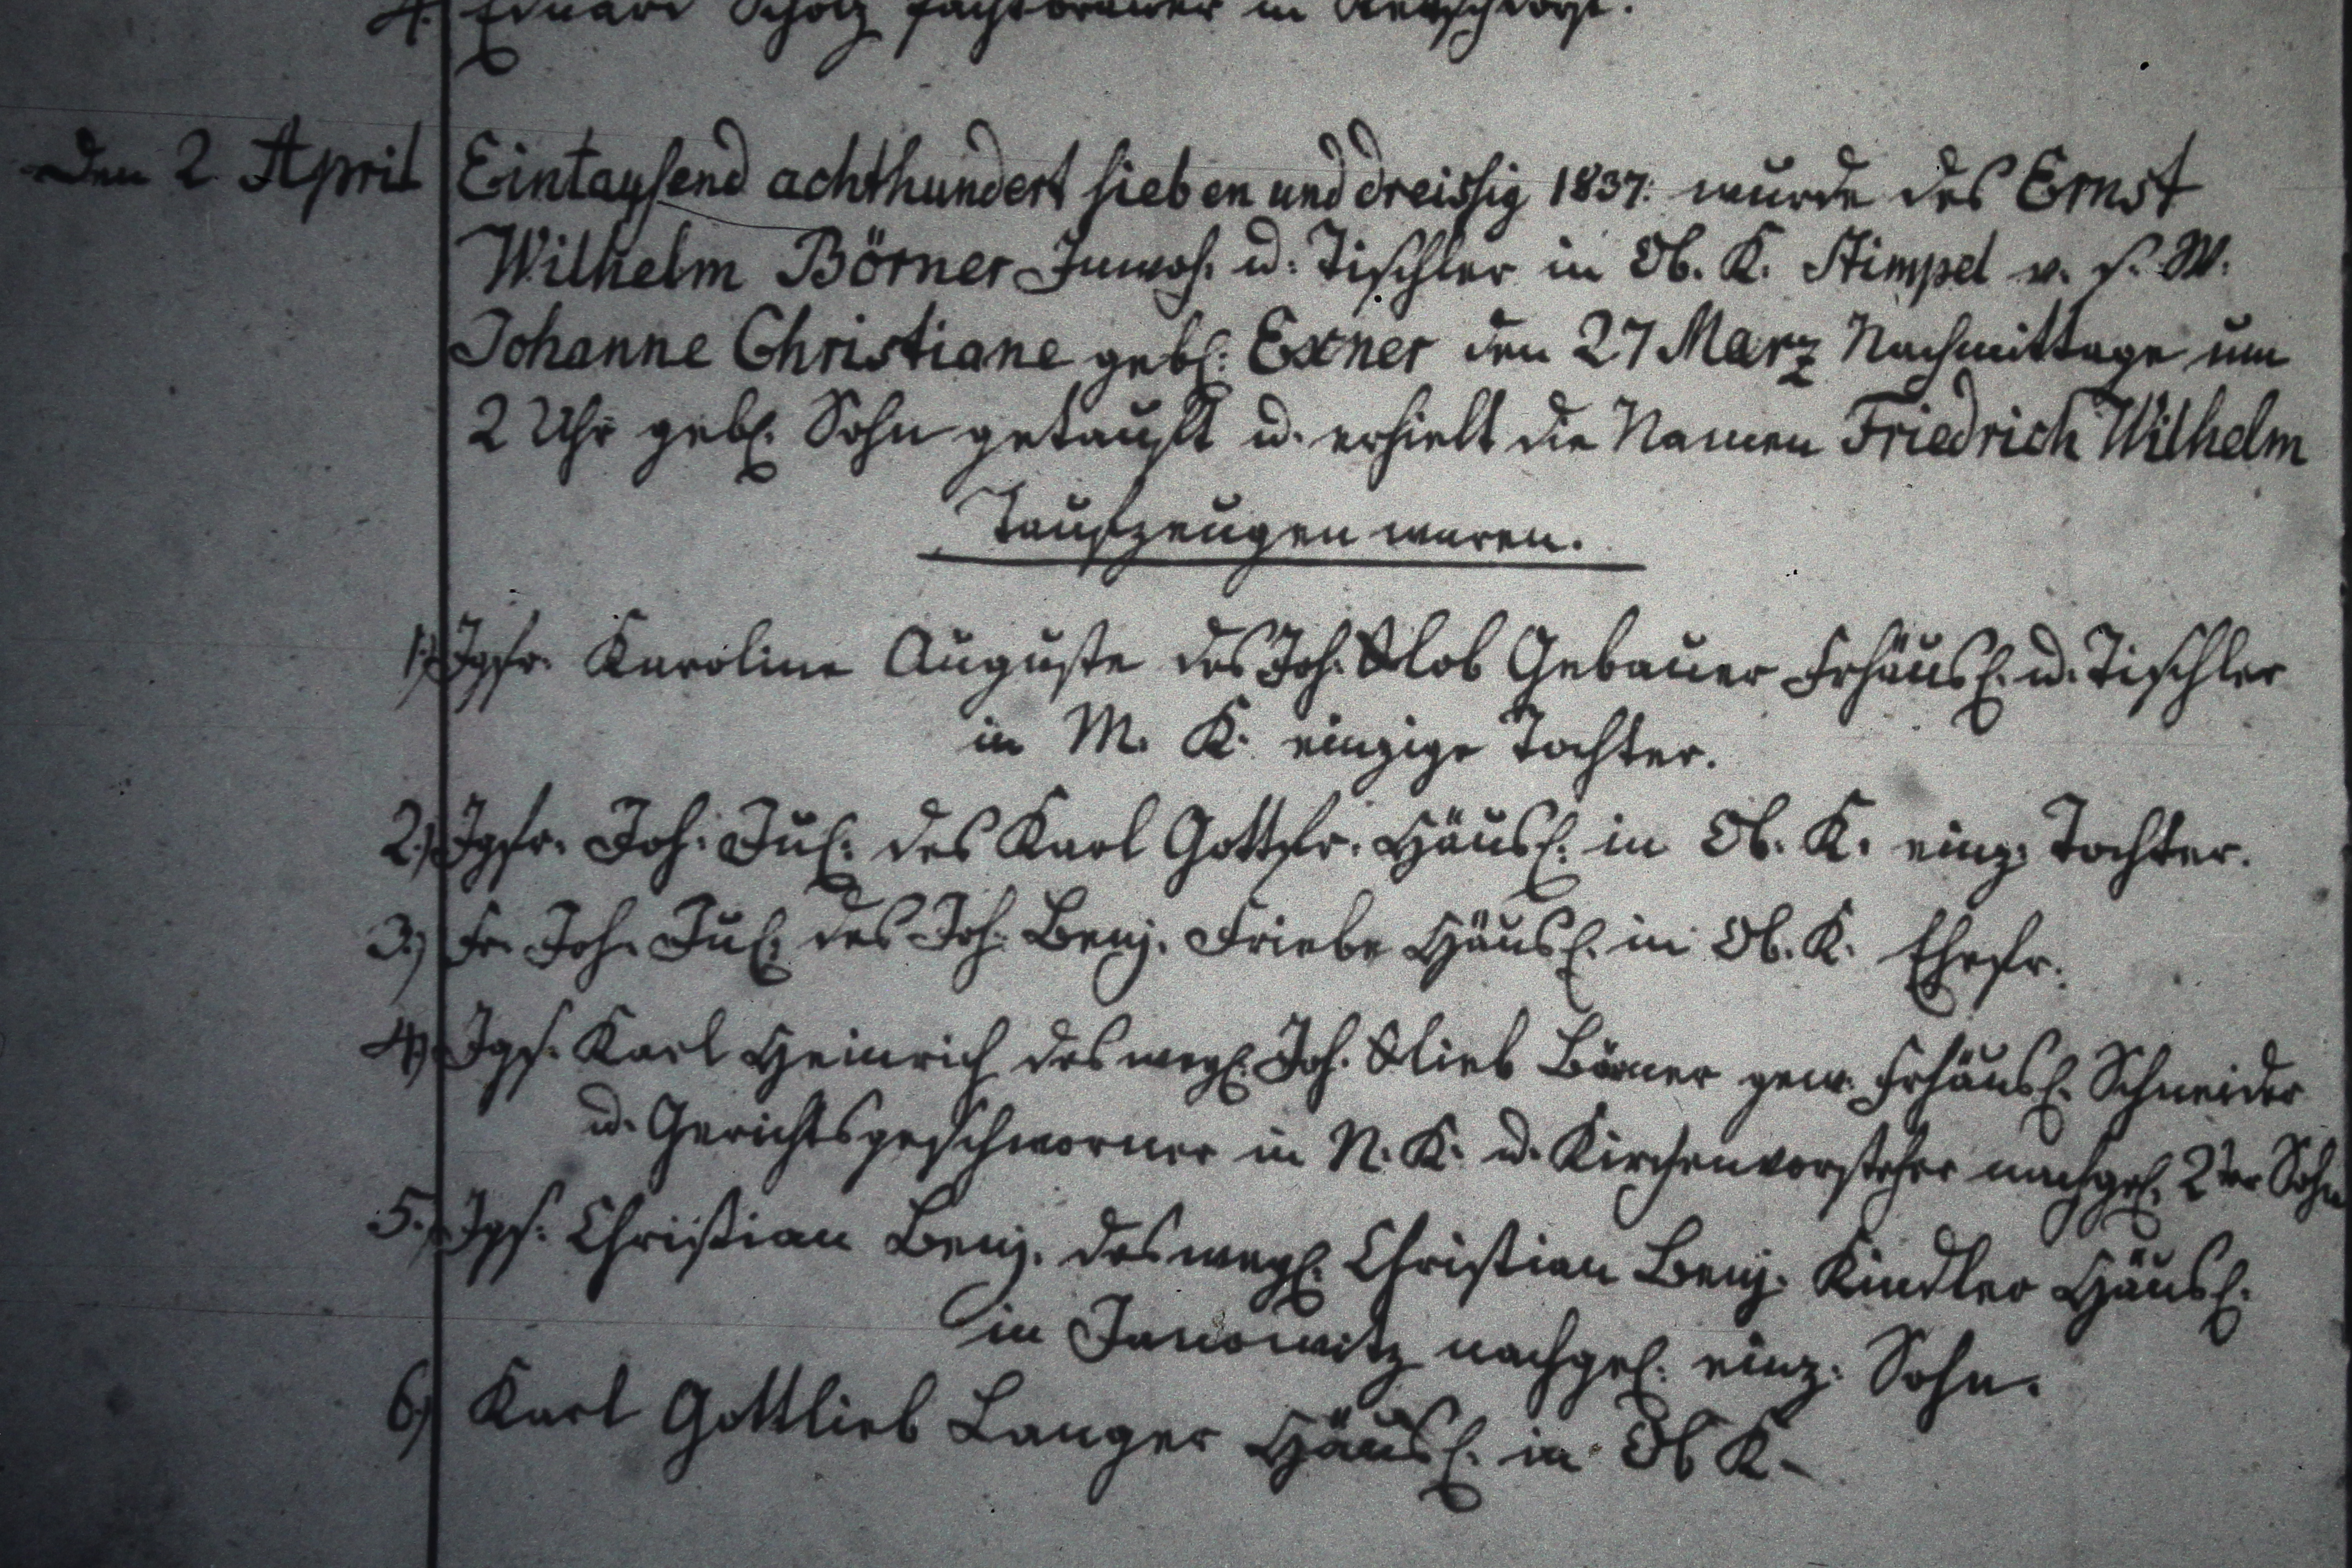 4. Eduard Scholz Pachtbrauer in
Den 2 April Eintausend achthundert sieben und dreissig 1837: wurde des Ernst
Wilhelm Börner Inwoh. u. Tischler in Ob. K. Stimpel v. s. W.
Johanne Christiane gebl: Exner den 27 März Nachmittage um
2 Uhr gebl. Sohn getauft u. erhielt die Namen Friedrich Wilhelm
Taufzeugen waren.
1.) Jgfr. Karoline Auguste des Joh. Glob Gebauer Frhäusl. u. Tischler
in M. K. einzige Tochter.
2.) Jgfr. Joh: Jul: des Karl Gottfr. Häusl. in Ob. K. einz: Tochter.
3.) Fr. Joh. Jul: des Joh. Benj. Friebe Häusl. in Ob. K. Ehefr.
4.) Jgs. Karl Heinrich des weyl. Joh. Glieb Börner gew. Frhäusl. Schneider
u. Gerichtsgeschworner in N. K. u. Kirchenvorsteher nachgel. 2ter Sohn
5.) Jgs. Christian Benj. des weyl. Christian Benj. Kindler Häusl.
in Janowitz nachgel: einz: Sohn.
6.) Karl Gottlieb Langer Häusl. in Ob K.